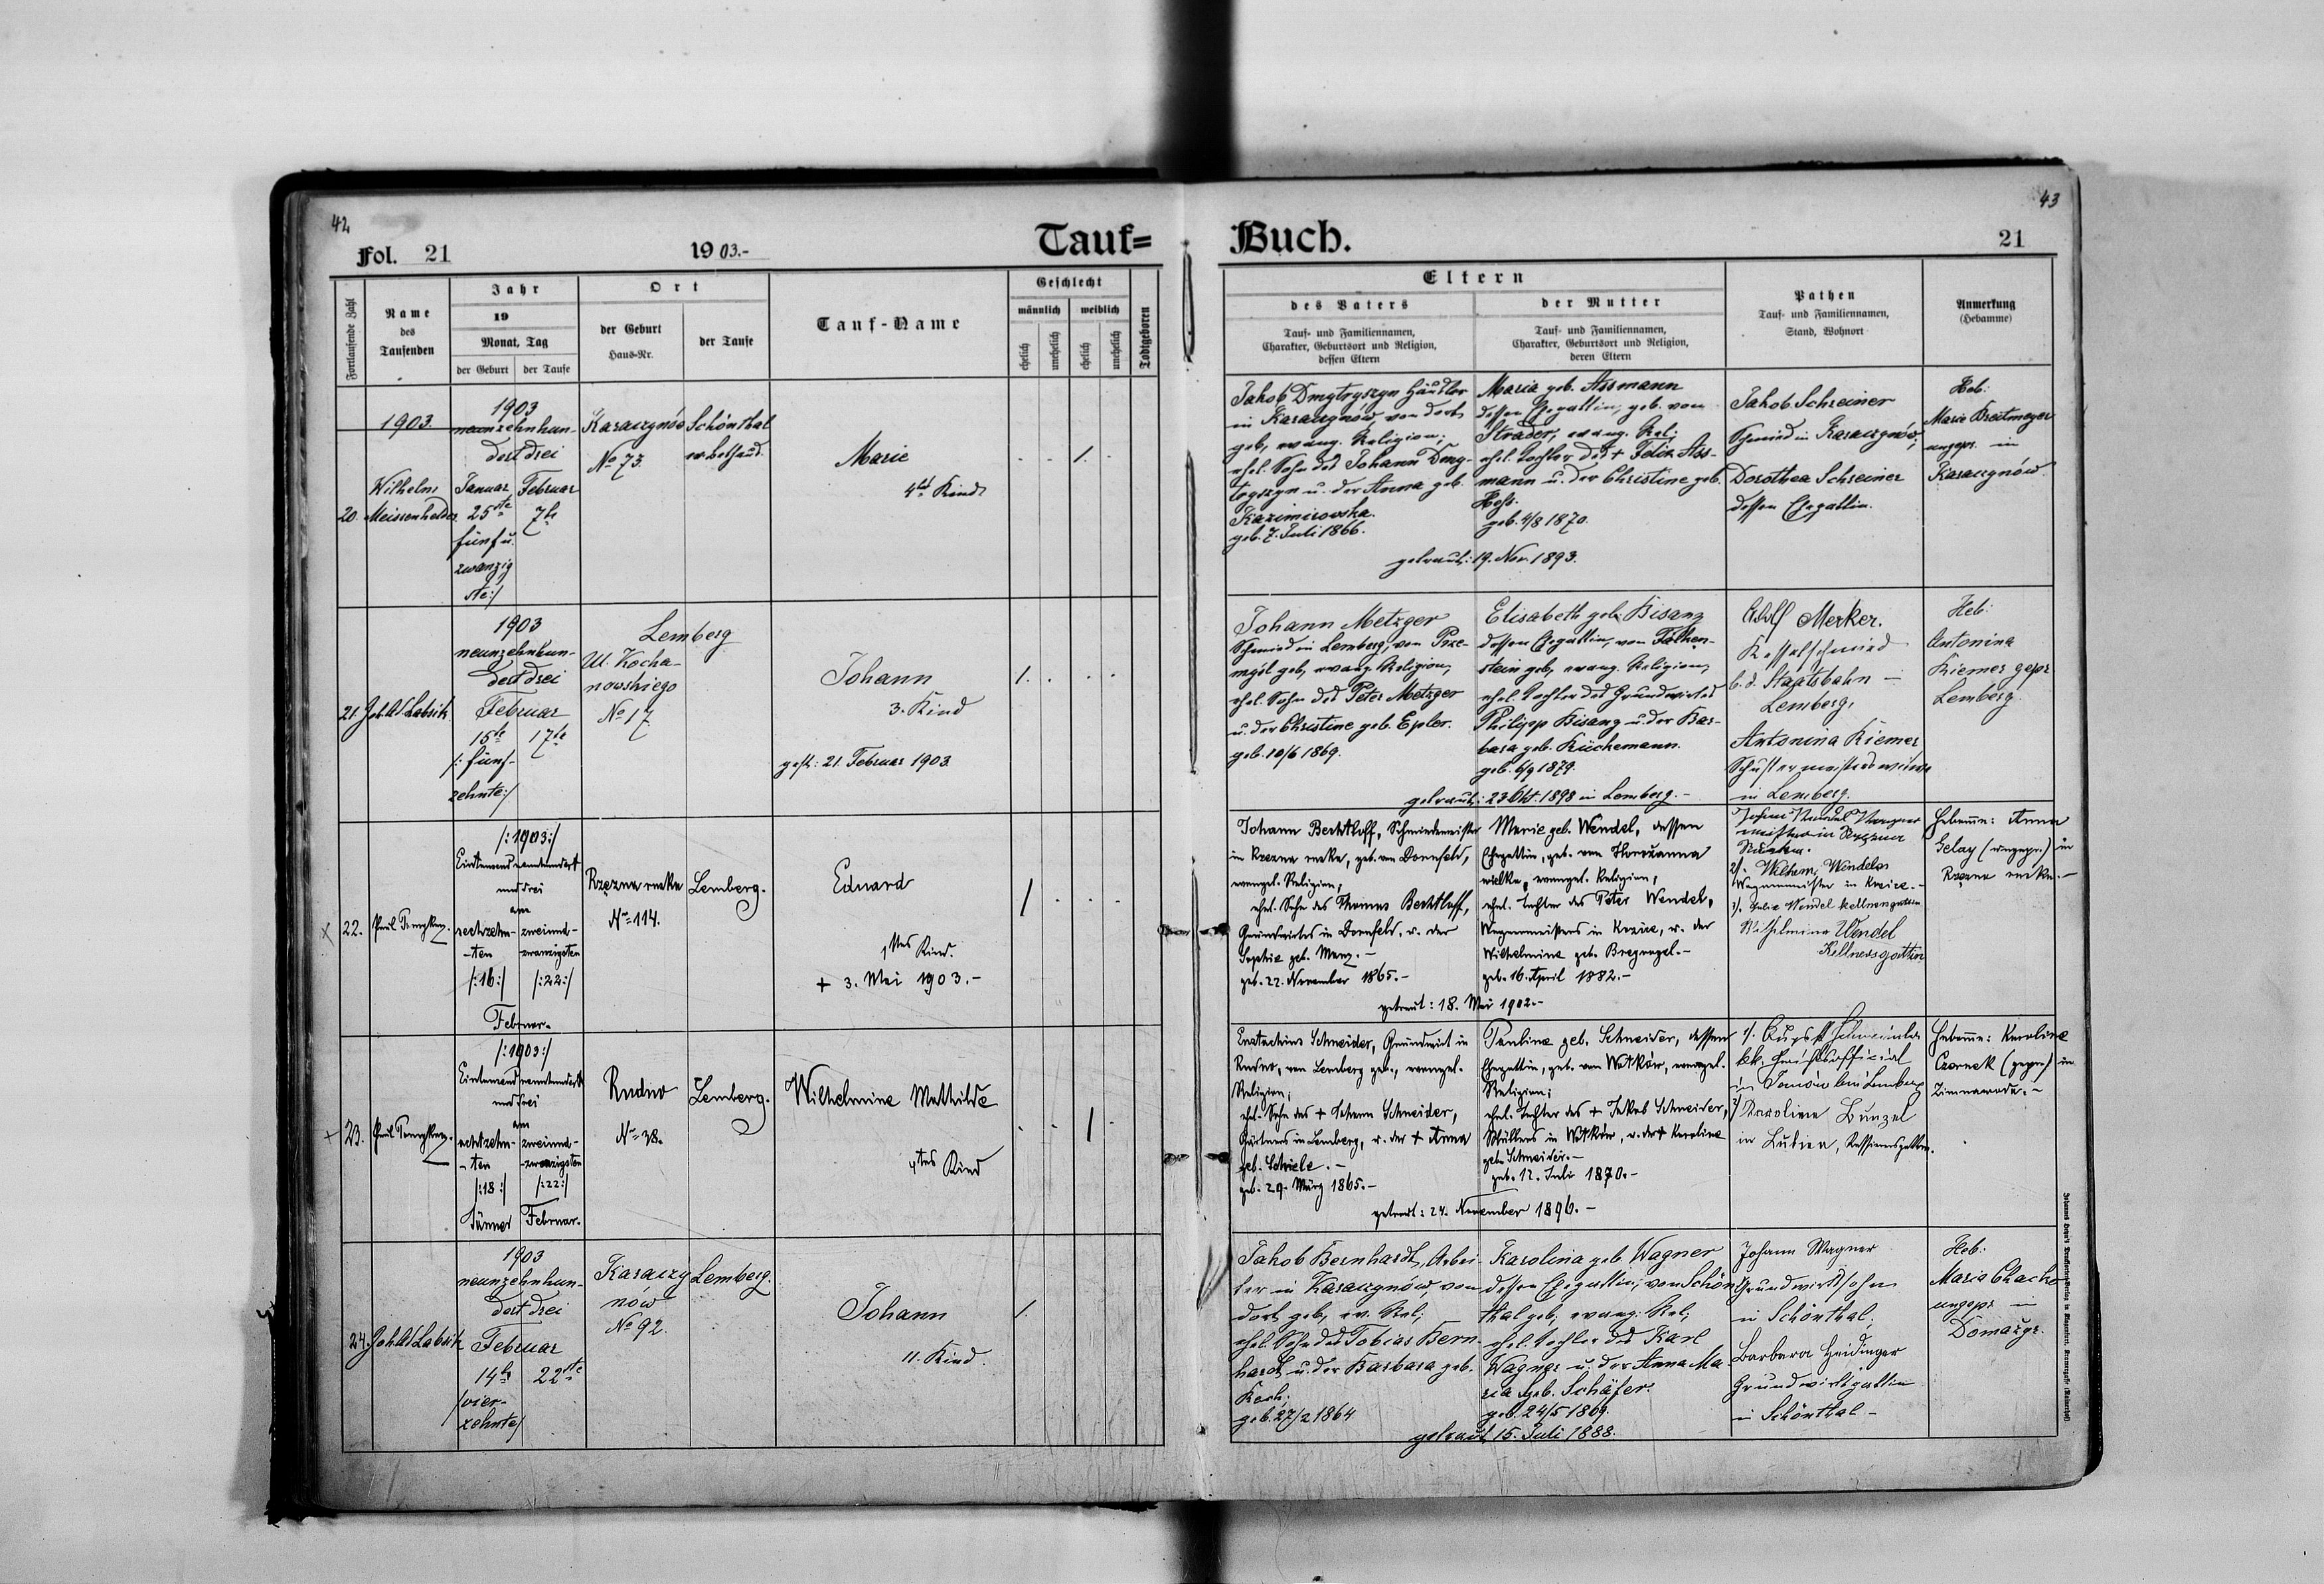 42
43
Fol. 21
1903.-
Tauf=
Buch.
21
Fortlaufende Zahl
Name
des
Taufenden
Jahr
19
Monat, Tag
der Geburt
der Taufe
Ort
der Geburt
Haus-Nr.
der Taufe
Tauf-Name
Geschlecht
männlich
weiblich
ehelich
unehelich
ehelich
unehelich
Todtgeboren
Eltern
des Vaters
Tauf- und Familiennamen,
Charakter, Geburtsort und Religion,
dessen Eltern
der Mutter
Tauf- und Familiennamen,
Charakter, Geburtsort und Religion,
deren Eltern
Pathen
Tauf- und Familiennamen,
Stand, Wohnort
Anmerkung
(Hebamme)
1903.
20.
Wilhelm
1903
neunzehnhun-
dert drei
Januar
25ste
fünf u.
zwanzig
ste:/
Februar
7te
No 73.
Schönthal
Marie
4tes Kind
1.
Jakob Dmytryszyn Händler
in Karaczynów, von dort
geb, evang. Religion;
ehel. Sohn des Johann Dmy-
tryszyn u. der Anna geb.
geb. 7. Juli 1866.
Maria geb. Assmann
dessen Ehegattin, geb. von
evang. Rel;
ehel. Tochter des + Felix Ass-
mann u. der Christine geb.
Hess.
geb. 4/8 1870.
getraut: 19. Nov. 1893.
Jakob Schreiner
Schmied in Karaczynów,
Dorothea Schreiner
dessen Ehegattin.
Heb:
Marie Breitmeyer
ungepr. in
Karaczynów
21.
1903
neunzehnhun-
dert drei
Februar
15te
17te
/: fünf-
zehnte:/
Lemberg
Ul. Kocha-
nowskiego
No 17
Johann
3. Kind
gest: 21. Februar 1903.
1.
Johann Metzger
Schmied in Lemberg, von Prze-
myśl geb, evang. Religion,
ehel. Sohn des Peter Metzger
u. der Christine geb. Epler.
geb. 10/6 1869.
Elisabeth geb. Bisanz
dessen Ehegattin, von Falken-
stein geb, evang. Religion,
ehel. Tochter des Grundwirtes
Philipp Bisanz u. der Bar-
bara geb. Küchemann.
geb. 6/9 1879.
getraut: 23 Okt. 1898 in Lemberg.-
Adolf Merker.
Kesselschmied
b. d. Staatsbahn -
Lemberg,
Antonina Kiemer
in Lemberg.
Heb:
Antonina
Kiemer gepr
Lemberg.
22.
/:1903:/
Eintausendneunhundert
und drei
am
sechzehn-
-ten
/:16:/
zweiund-
zwanzigsten
/:22:/
Februar.
Rzęzna ruska
No 114.
Lemberg.
Eduard
1tes Kind.
+ 3. Mai 1903.-
1
Johann Berthloff, Schmiedemeister
in Rzęzna ruska, geb. von Dornfeld,
evangel. Religion,
ehel. Sohn des Thomas Berthloff,
Grundwirtes in Dornfeld, u. der
Sophie geb. Manz.-
geb. 22. November 1865.-
Marie geb. Wendel, dessen
Ehegattin, geb. von
wielka, evangel. Religion,
ehel. Tochter des Peter Wendel,
Wagnermeisters in Kozice, u. der
Wilhelmine geb. Bregnagel.-
geb. 16. April 1882.-
getraut: 18. Mai 1902.-
Wilhelmine Wendel
Kellnersgattin
Hebamme: Anna
(ungepr.) in
Rzęzna ruska.-
23.
/:1903:/
Eintausendneunhundert
und drei
am
achtzehn-
-ten
/:18:/
Jänner
zweiund-
-zwanzigsten
/:22:/
Februar.
Rudno
No 38.
Lemberg.
Wilhelmine Mathilde
4tes Kind
1
Eustachius Schneider, Grundwirt in
Rudno, von Lemberg geb., evangel.
Religion;
ehel. Sohn des + Johann Schneider,
Gärtners in Lemberg, u. der + Anna
geb. Schiele.-
geb. 29. März 1865.-
Pauline geb. Schneider, dessen
Ehegattin, geb. von Witków, evangel.
Religion;
ehel. Tochter des + Jakob Schneider,
Müllers in Witków, u. der + Karoline
geb. Schneider.-
geb. 12. Juli 1870.-
getraut: 24. November 1896.-
in Janów bei Lemberg
Karoline Bunzel
Hebamme: Karoline
Czornek (gepr.) in
Zimnawoda.-
24.
1903
neunzehnhun-
dert drei
Februar
14te
22ste
/vier-
zehnte/
Karaczy
nów
No 92.
Lemberg.
Johann
11. Kind.
1.
Jakob Bernhardt, Arbei-
ter in Karaczynów, von
dort geb, ev. Rel;
ehel. Sohn des Tobias Bern-
hardt u. der Barbara geb.
Koch;
geb. 27/2 1864
Karolina geb. Wagner
dessen Ehegattin, von Schön-
thal geb, evang. Rel;
ehel. Tochter des Karl
Wagner u. der Anna Ma-
ria geb. Schäfer.
geb. 24/5 1869.
getraut 15. Juli 1888.
Johann Wagner
Grundwirtssohn
in Schönthal,
Barbara Heidinger
Grundwirtsgattin
in Schönthal -
Heb:
ungepr in